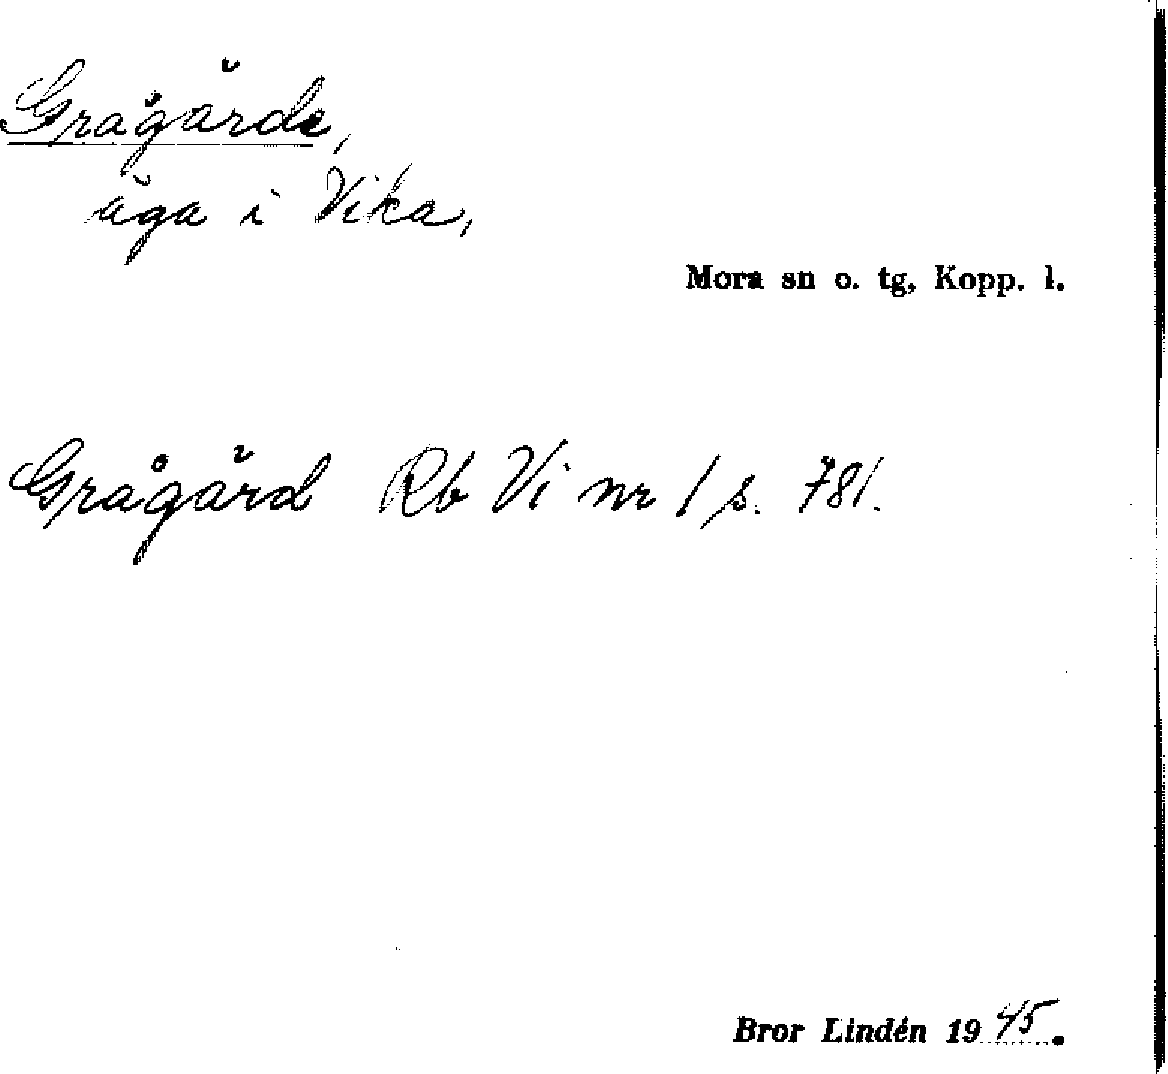 Grågärde,
äga i Vika,
Mora sn o. tg, Kopp. l.
Grågärd Rb Vi nr 1 s. 781.
Bror Lindén 1945.